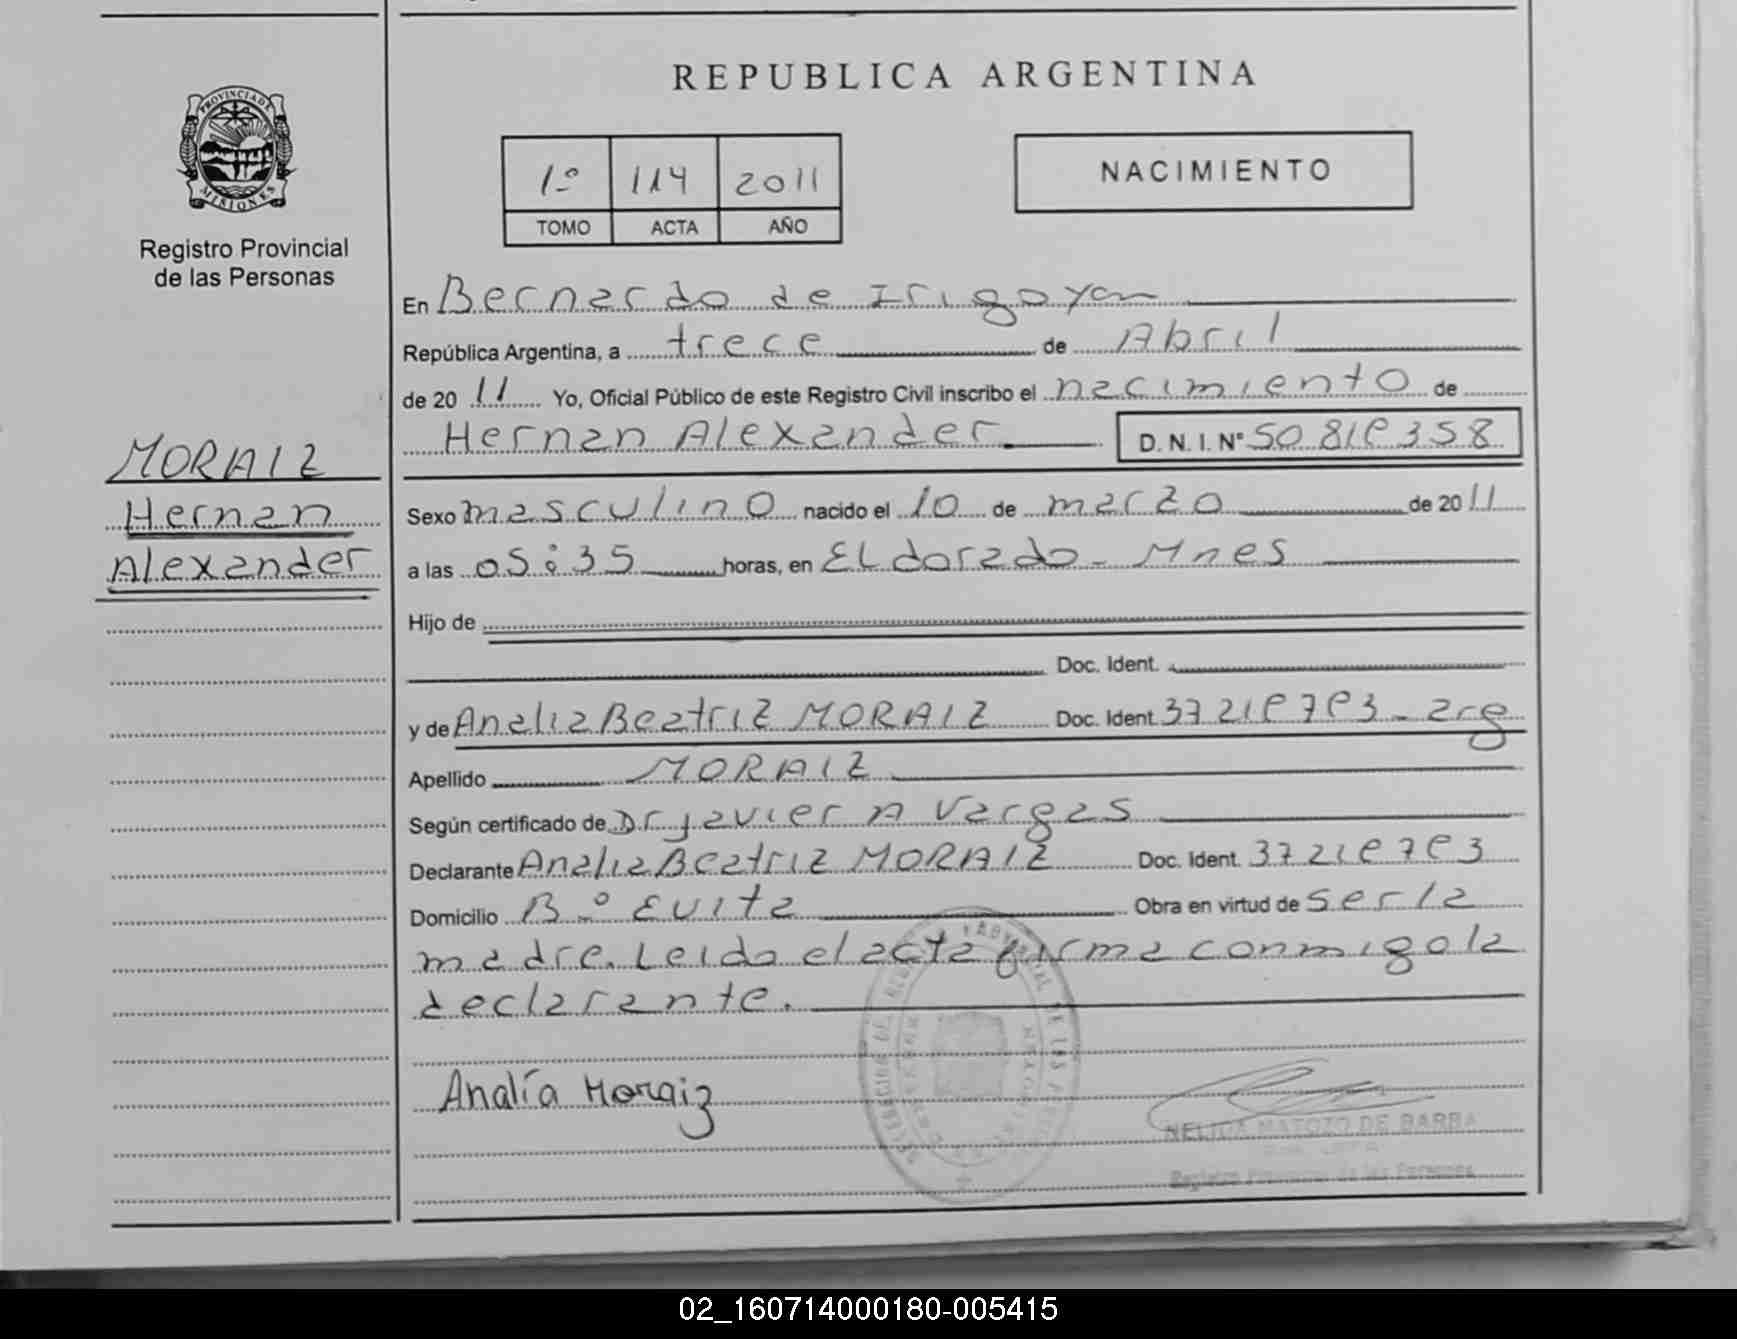 REPUBLICA ARGENTINA
PROVINCIA DE
MISIONES
Registro Provincial
de las Personas
1º 114 2011
TOMO ACTA AÑO
NACIMIENTO
En Bernardo de Irigoyen
República Argentina, a trece de Abril
de 2011 Yo, Oficial Público de este Registro Civil inscribo el nacimiento de
Hernan Alexander D.N.I.Nº 50 818 358
MORAIZ
Hernan
Alexander
Sexo masculino nacido el 10 de marzo de 2011
a las 05:35 horas, en Eldorado - Mnes
Hijo de
Doc. Ident.
y de Analia Beatriz MORAIZ Doc. Ident. 37218783 - arg
Apellido MORAIZ
Según certificado de Dr Javier A Vargas
Declarante Analia Beatriz MORAIZ Doc. Ident. 37218783
Domicilio Bº Evita Obra en virtud de ser la
madre. Leida el acta firma conmigo la
declarante.
Analía Moraiz
NELIDA MATOZO DE BARBA
Registro Provincial de las Personas
02_160714000180-005415